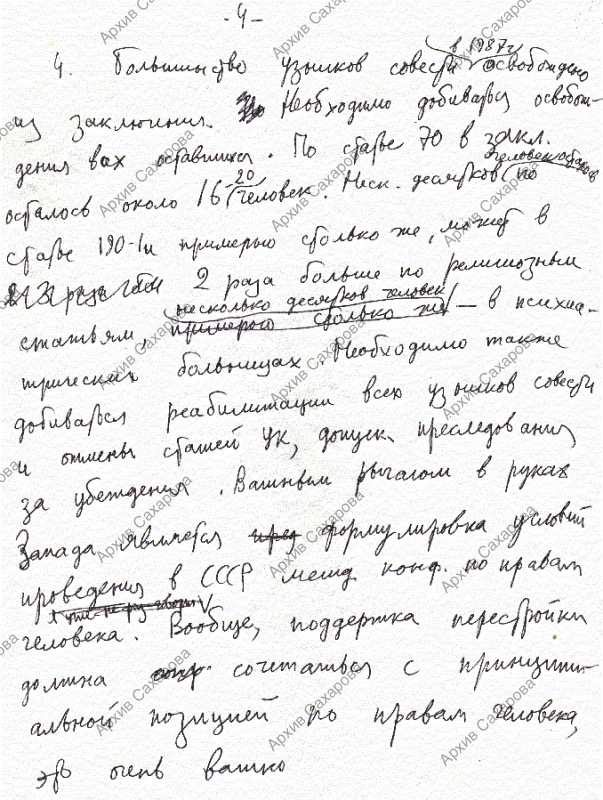 -4-
в 1987г
4. Большинство узников совести освобождено
из заключения. Необходимо добиваться освобож-
дения всех оставшихся. По статье 70 в закл.
20 человек
осталось около 16 человек. Неск. десятков по
статье 190-1 и примерно столько же, может в
2 раза больше по религиозным
несколько десятков человек
статьям, примерно столько же — в психиа-
трических больницах. Необходимо также
добиваться реабилитации всех узников совести
и отмены статей УК, допуск. преследования
за убеждения. Важным рычагом в руках
Запада является пред формулировка условий
проведения в СССР межд. конф. по правам
человека. Вообще, поддержка перестройки
должна сочетаться с принципи-
альной позицией по правам человека,
это очень важно
Архив Сахарова